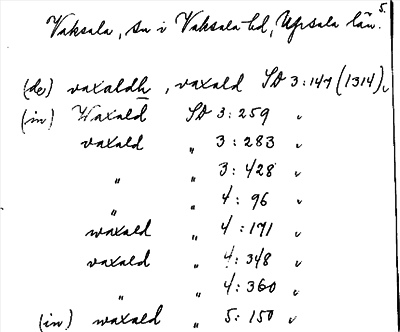 5.
Vaksala, sn i Vaksala hd, Upsala län.
(de) vaxaldh, vaxald SD 3:147 (1314)
(in) Waxald SD 3:259
vaxald " 3:283
" " 3:428
" " 4:96
waxald " 4:171
vaxald " 4:348
" " 4:360
(in) waxald " 5:150